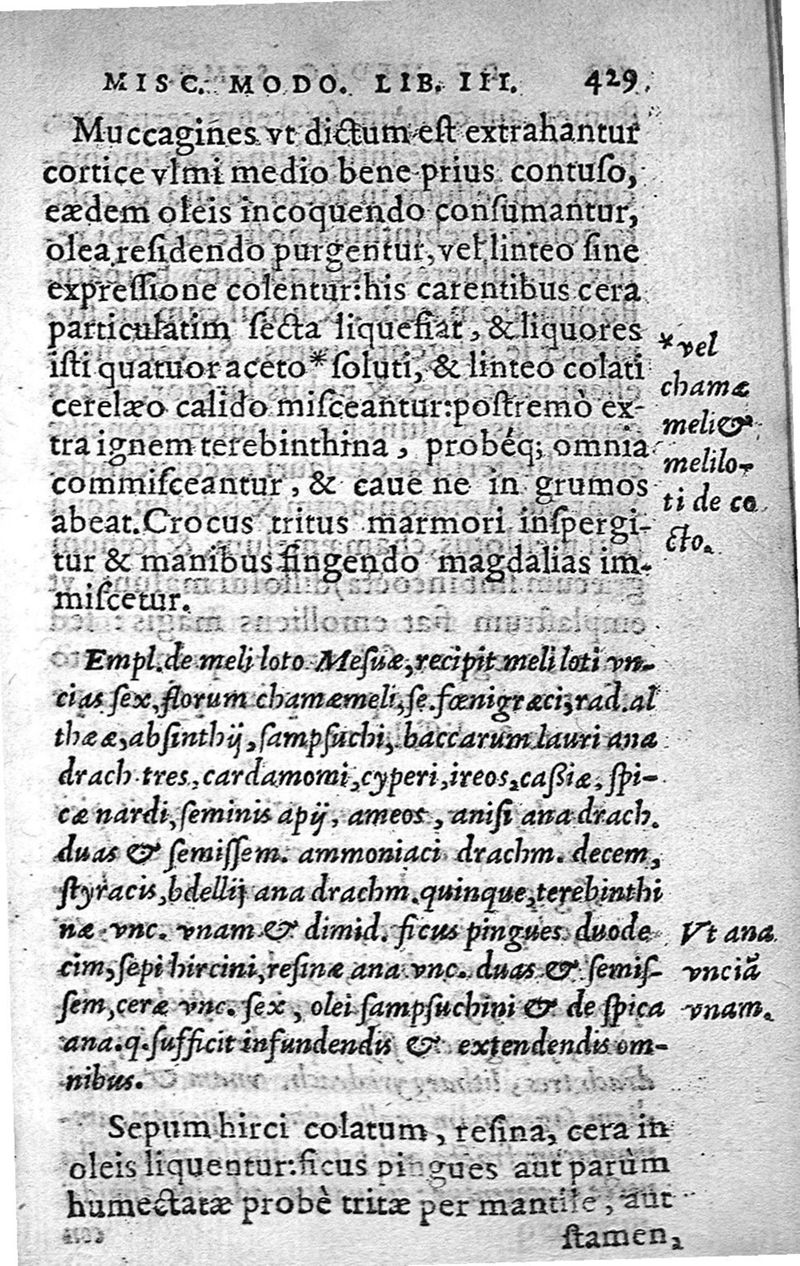 MISC. MODO. LIB. III. 429.
Muccagines vt dictum est extrahantur
cortice vlmi medio bene prius contuso,
eædem oleis incoquendo consumantur,
olea residendo purgentur, vel linteo sine
expressione colentur: his carentibus cera
particulatim secta liquefiat, & liquores
isti quatuor aceto * soluti, & linteo colati
cerelæo calido misceantur: postremò ex-
tra ignem terebinthina, probéq; omnia
commisceantur, & caue ne in grumos
abeat. Crocus tritus marmori inspergi-
tur & manibus fingendo magdalias im-
miscetur.
* vel
chamæ
meli &
melilo-
ti de co
cto.
Empl. de meliloto Mesuæ, recipit meliloti vn-
cias sex, florum chamæmeli, se. fœnigræci, rad. al
thææ, absinthij, sampsuchi, baccarum lauri ana
drach. tres, cardamomi, cyperi, ireos, cassiæ, spi-
cæ nardi, seminis apij, ameos, anisi ana drach.
duas & semissem. ammoniaci drachm. decem,
styracis, bdellij ana drachm. quinque, terebinthi
næ vnc. vnam & dimid. ficus pingues duode
cim, sepi hircini, resinæ ana vnc. duas & semis-
sem, ceræ vnc. sex, olei sampsuchini & de spica
ana. q. sufficit infundendis & extendendis om-
nibus.
Vt ana
vnciã
vnam.
Sepum hirci colatum, resina, cera in
oleis liquentur: ficus pingues aut parùm
humectatæ probè tritæ per mantile, aut
stamen,